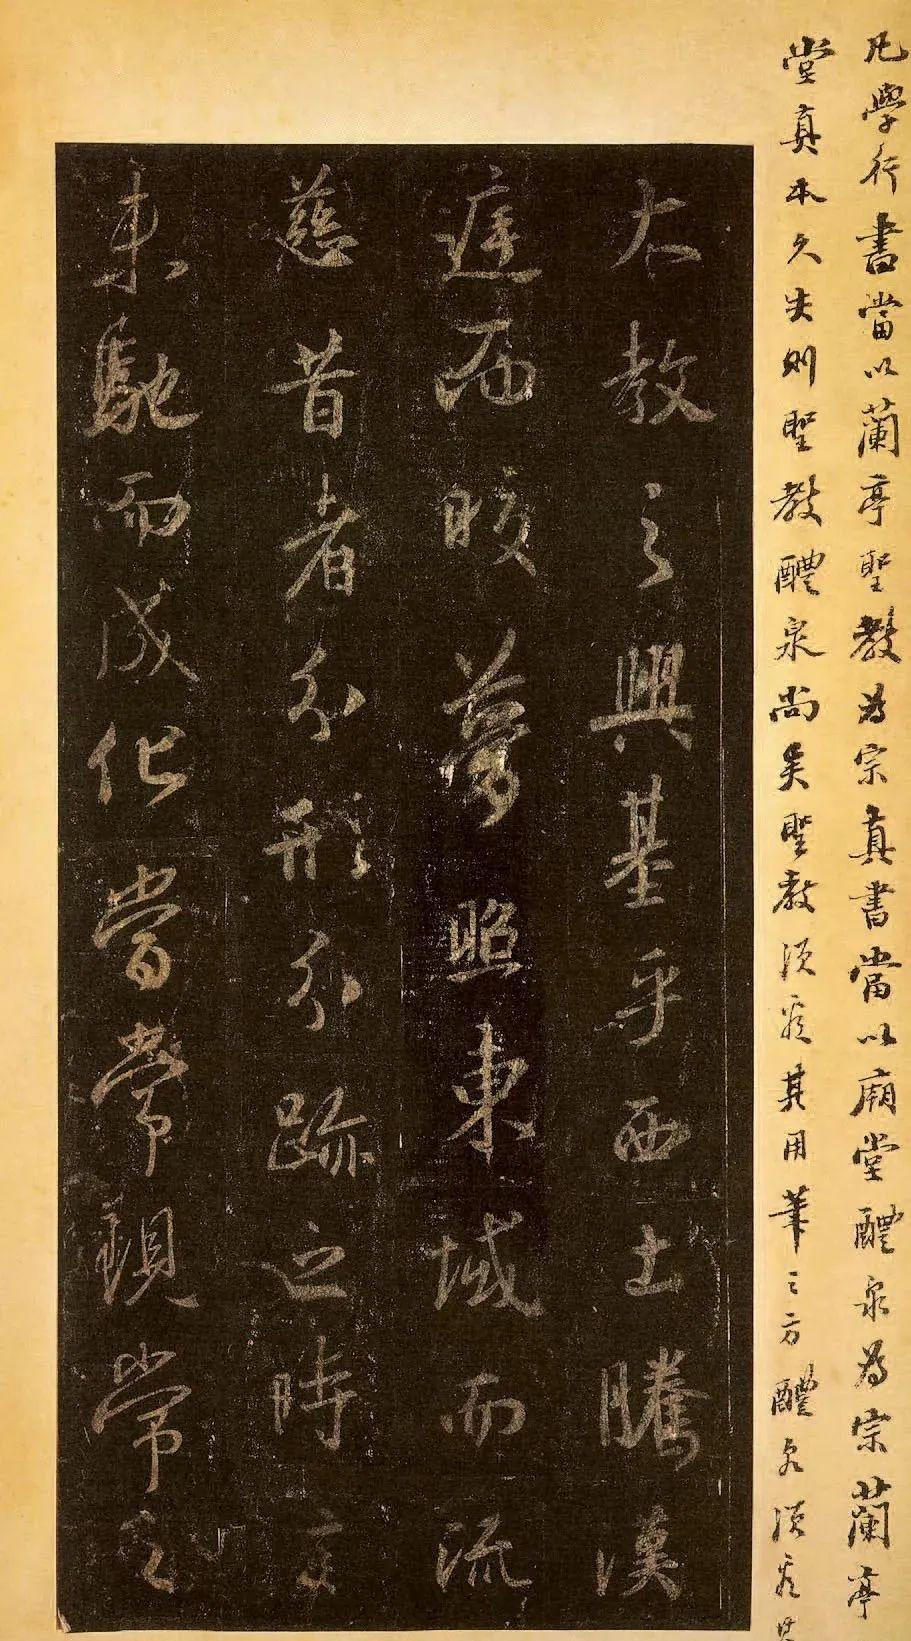 凡學行書當以蘭亭聖教為宗真書當以廟堂醴泉為宗蘭亭
堂真本久失則聖教醴泉尚矣聖教須看其用筆之方醴泉須看其
大教之興基乎西土騰漢
庭而皎夢照東域而流
慈昔者分形分跡之時言
未馳而成化當常現常之